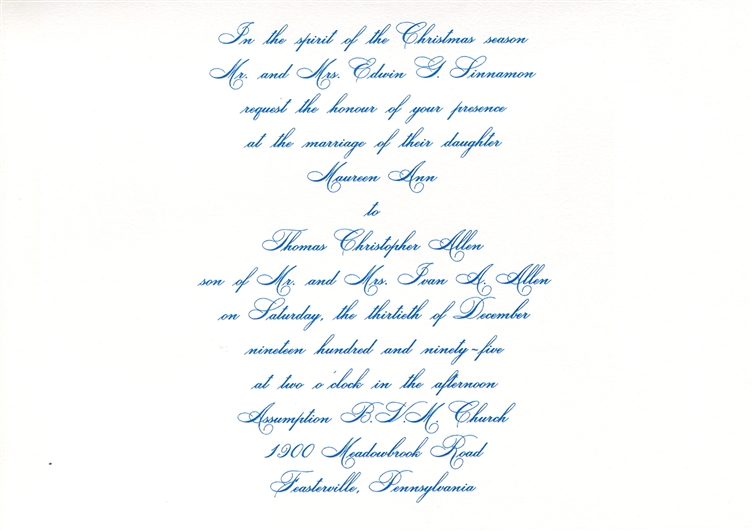 In the spirit of the Christmas season
Mr. and Mrs. Edwin G. Sinnamon
request the honour of your presence
at the marriage of their daughter
Maureen Ann
to
Thomas Christopher Allen
son of Mr. and Mrs. Ivan A. Allen
on Saturday, the thirtieth of December
nineteen hundred and ninety-five
at two o'clock in the afternoon
Assumption B.V.M. Church
1900 Meadowbrook Road
Feasterville, Pennsylvania